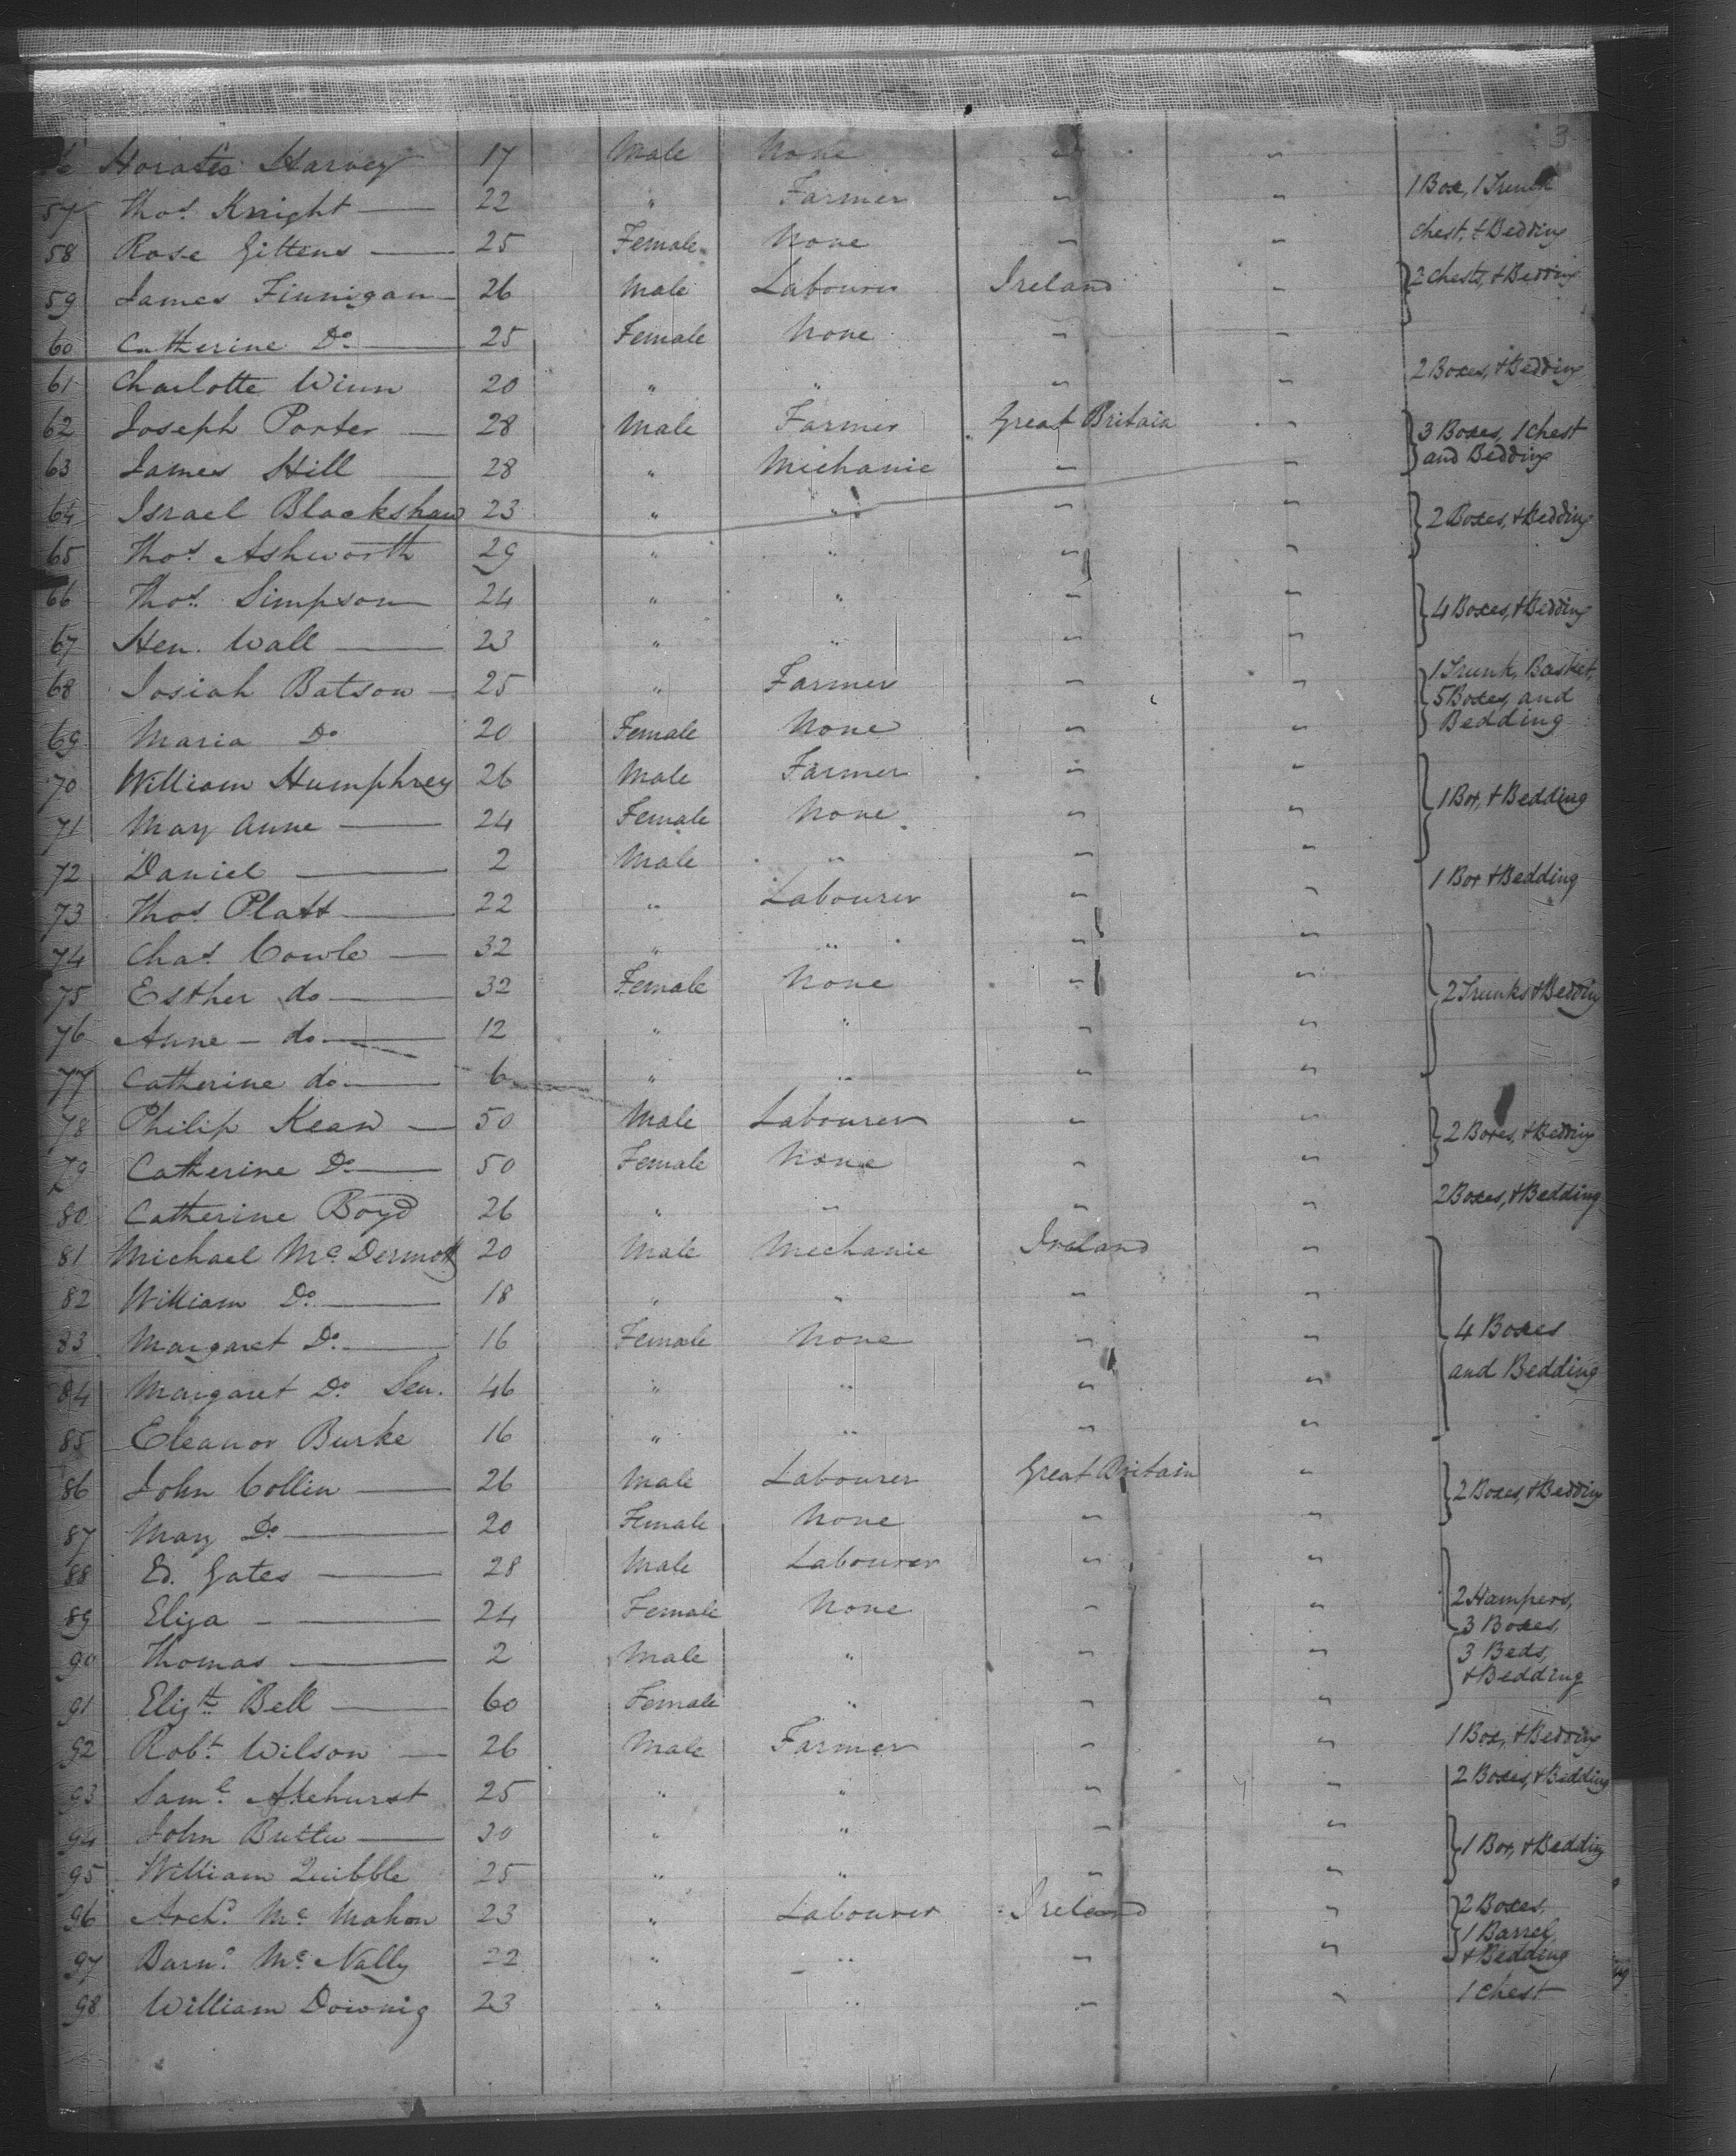 3
Horatio Harvey 17 Male None " "
57 Thos. Knight — 22 " Farmer " " 1 Box, 1 Trunk
58 Rose Gittens — 25 Female None " " Chest, & Bedding
59 James Finnigan — 26 Male Labourer Ireland " 2 Chests, & Bedding
60 Catherine Do. — 25 Female None " "
61 Charlotte Winn 20 " " " " 2 Boxes, & Bedding
62 Joseph Porter — 28 Male Farmer Great Britain " 3 Boxes, 1 Chest
63 James Hill — 28 " Michanic " " and Bedding
64 Israel Blackshaw 23 " " " " 2 Boxes, & Bedding
65 Thos. Ashworth 29 " " " "
66 Thos. Simpson 24 " " " " 4 Boxes, & Bedding
67 Hen. Wall — 23 " " " "
68 Josiah Batson — 25 " Farmer " " 1 Trunk, Basket,
5 Boxes, and
69 Maria Do 20 Female None " " Bedding
70 William Humphrey 26 Male Farmer " " 1 Box, & Bedding
71 Mary Anne — 24 Female None " "
72 Daniel — 2 Male " " "
73 Thos. Platt — 22 " Labourer " " 1 Box & Bedding
74 Chas. Cowle — 32 " " " "
75 Esther do — 32 Female None " " 2 Trunks & Bedding
76 Anne — do. — 12 " " " "
77 Catherine do — 6 " " " "
78 Philip Kean — 50 Male Labourer " " 2 Boxes, & Bedding
79 Catherine Do — 50 Female None " "
80 Catherine Boyd 26 " " " " 2 Boxes, & Bedding
81 Michael McDermott 20 Male Mechanic Ireland "
82 William Do. — 18 " " " "
83 Margaret Do. — 16 Female None " " 4 Boxes
84 Margaret Do. Sen. 46 " " " " and Bedding
85 Eleanor Burke 16 " " " "
86 John Collin — 26 Male Labourer Great Britain " 2 Boxes, & Bedding
87 Mary Do. — 20 Female None " "
88 Ed. Gates — 28 Male Labourer " "
89 Eliza — 24 Female None " " 2 Hampers,
3 Boxes,
90 Thomas — 2 Male " " " 3 Beds,
& Bedding
91 Elizth. Bell — 60 Female " " "
92 Robt. Wilson — 26 Male Farmer " " 1 Box, & Bedding
93 Saml. Akehurst 25 " " " " 2 Boxes, & Bedding
94 John Butler — 30 " " " " 1 Box, & Bedding
95 William Quibble 25 " " " "
96 Archd. Mc Mahon 23 " Labourer Ireland " 2 Boxes,
1 Barrel,
97 Barnd. Mc Nally 22 " " " " & Bedding
98 William Downig 23 " " " " 1 Chest